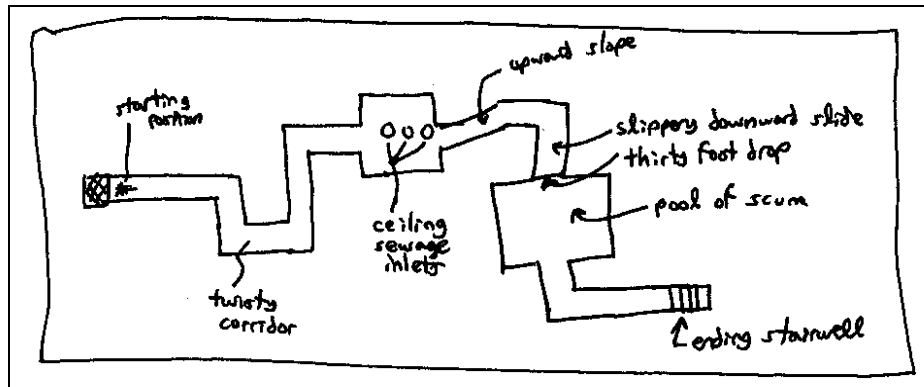 starting
position
twisty
corridor
ceiling
sewage
inlets
upward slope
slippery downward slide
thirty foot drop
pool of scum
ending stairwell